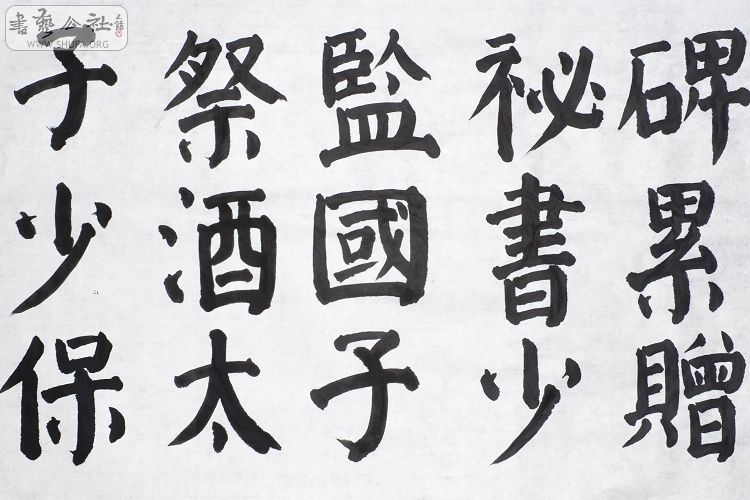 碑累贈
祕書少
監國子
祭酒太
子少保
書藝公社
WWW.SHUFA.ORG